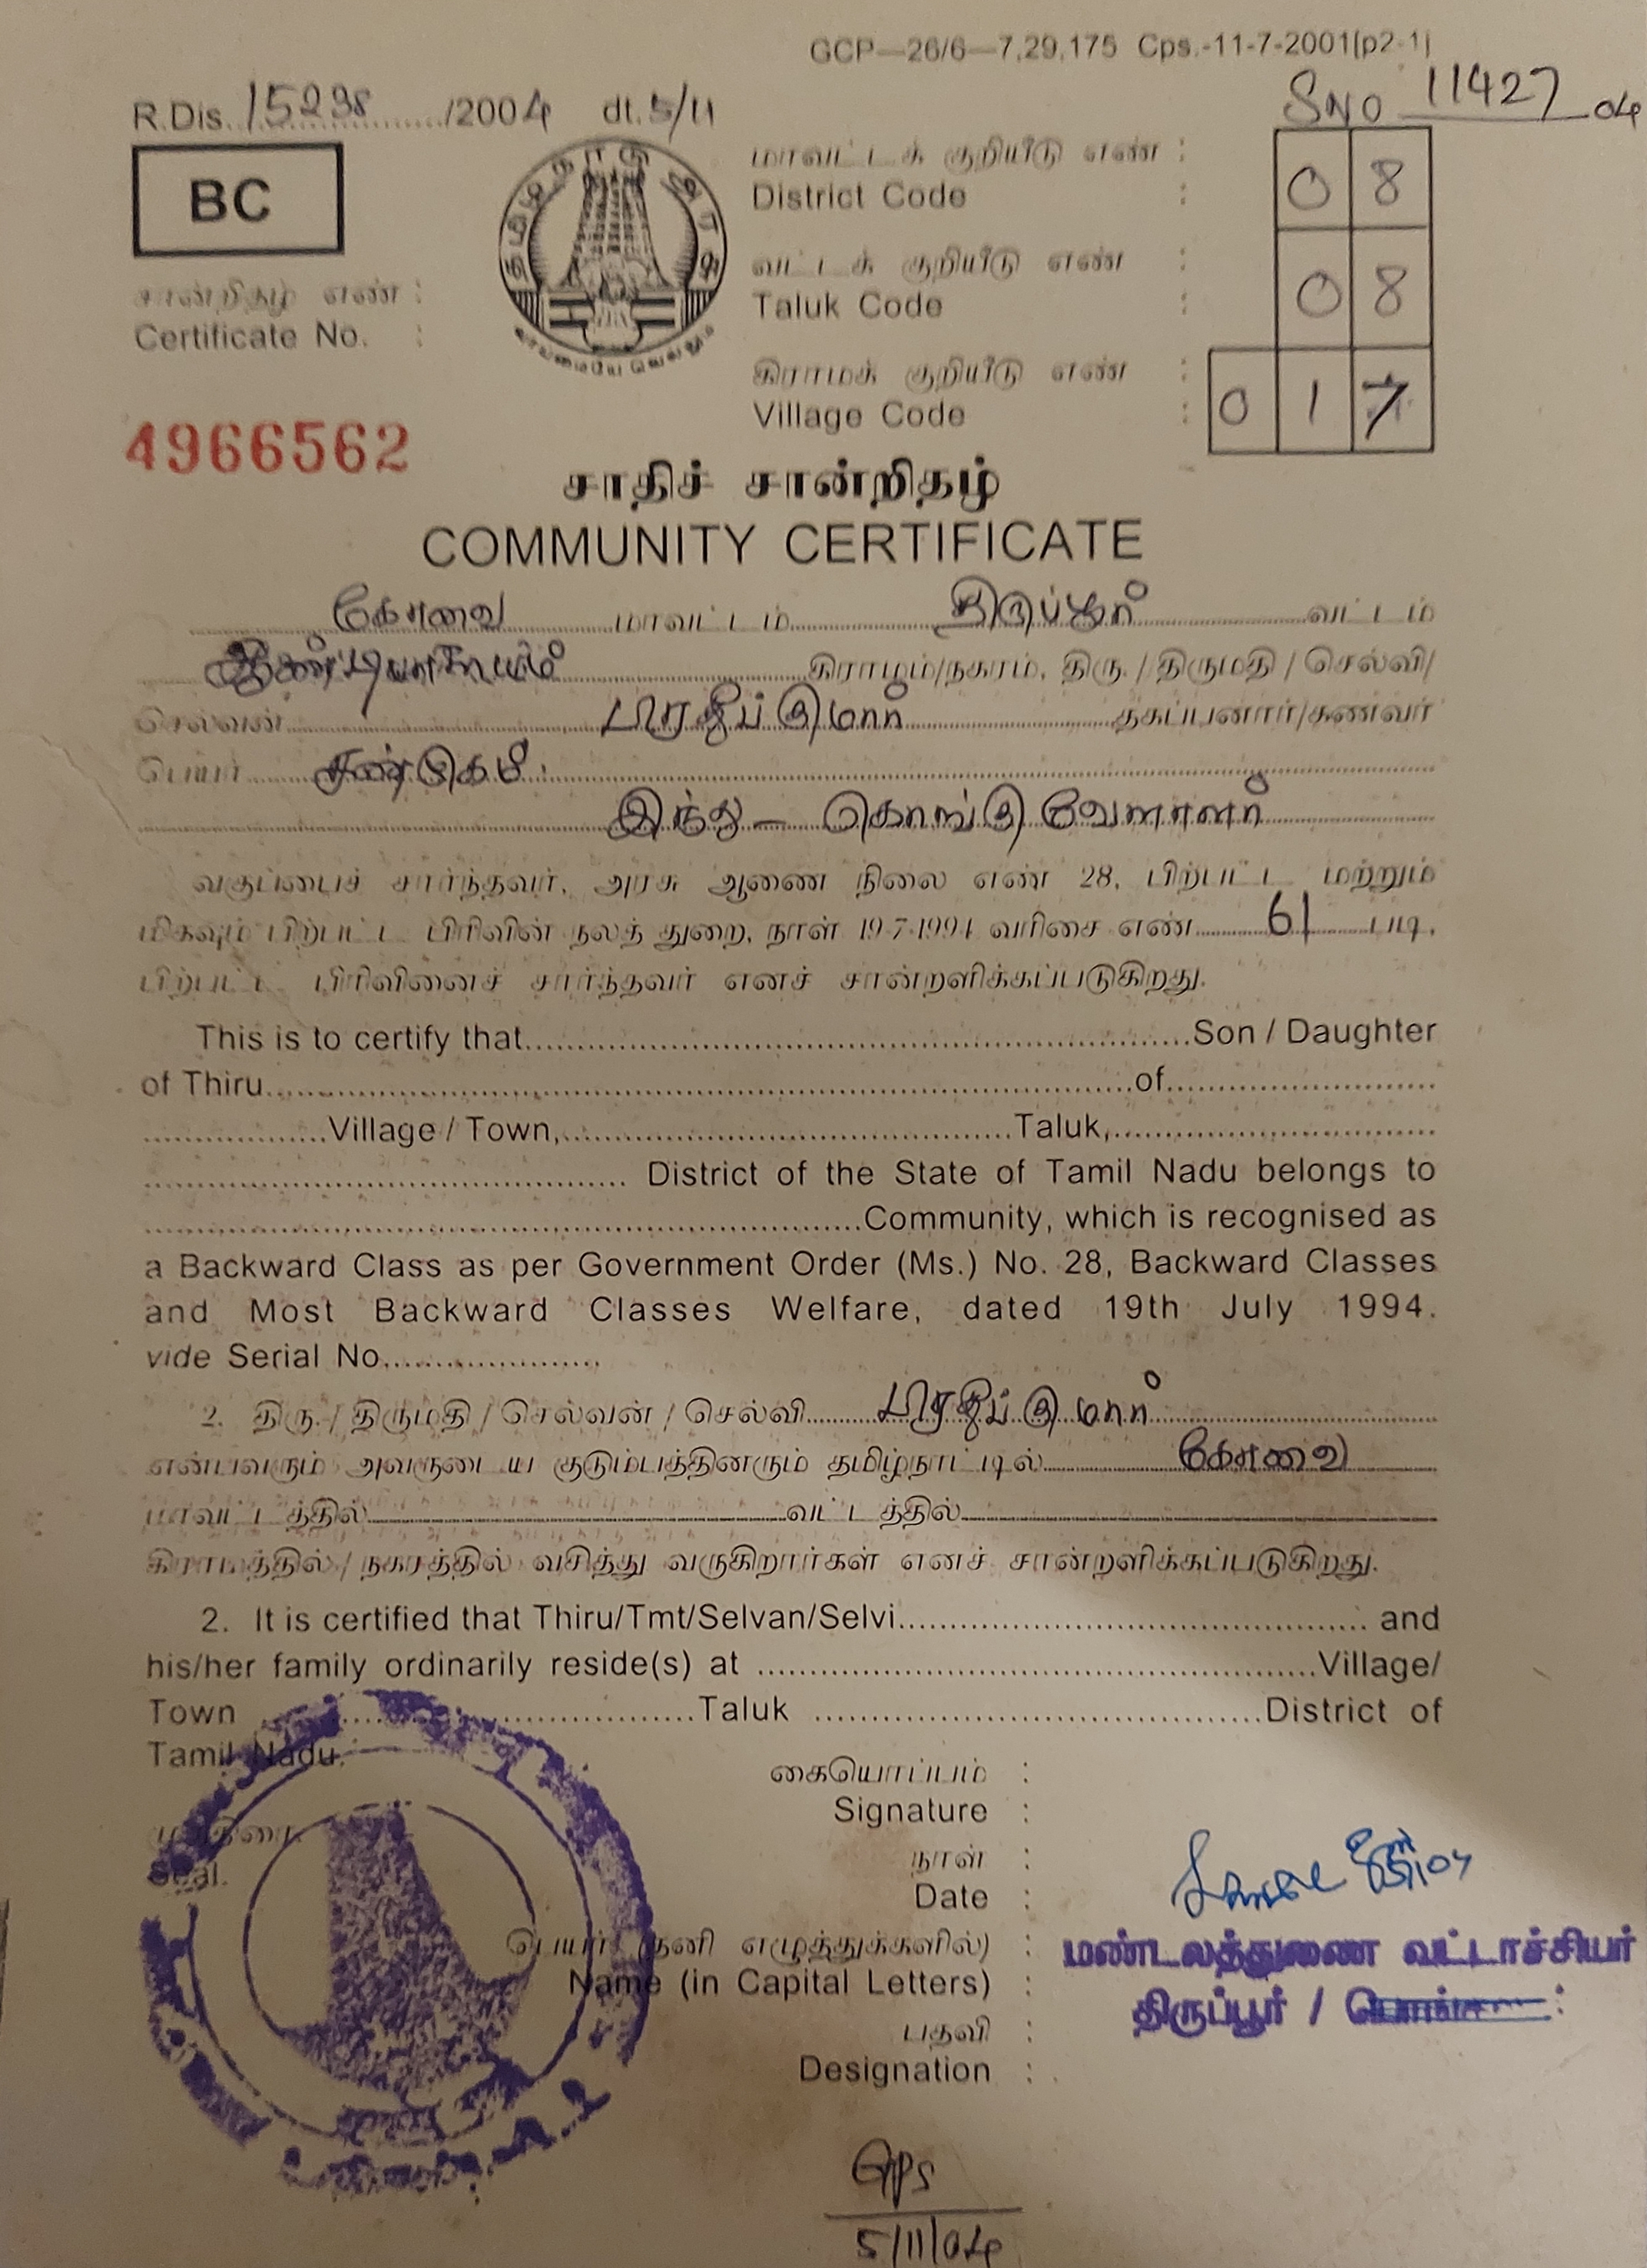 GCP—26/6—7,29,175 Cps.-11-7-2001(p2-1)
R.Dis. 15298 /2004 dt. 5/11
SNO 11427 04
BC
தமிழ்நாடு அரசு
வாய்மையே வெல்லும்
மாவட்டக் குறியீடு எண் :
District Code : 0 8
வட்டக் குறியீடு எண் :
Taluk Code : 0 8
சான்றிதழ் எண் :
Certificate No. :
கிராமக் குறியீடு எண் :
Village Code : 0 1 7
4966562
சாதிச் சான்றிதழ்
COMMUNITY CERTIFICATE
கோவை மாவட்டம் திருப்பூர் வட்டம்
கிராமம்/நகரம், திரு./திருமதி/செல்வி/
செல்வன் பிரதீப்குமார் தகப்பனார்/கணவர்
பெயர் சண்முகம்.
இந்து – கொங்கு வேளாளர்
வகுப்பைச் சார்ந்தவர், அரசு ஆணை நிலை எண் 28, பிற்பட்ட மற்றும்
மிகவும் பிற்பட்ட பிரிவின் நலத் துறை, நாள் 19-7-1994 வரிசை எண் 61 படி,
பிற்பட்ட பிரிவினைச் சார்ந்தவர் எனச் சான்றளிக்கப்படுகிறது.
This is to certify that..........Son / Daughter
of Thiru..........of..........
..........Village / Town,..........Taluk,..........
.......... District of the State of Tamil Nadu belongs to
..........Community, which is recognised as
a Backward Class as per Government Order (Ms.) No. 28, Backward Classes
and Most Backward Classes Welfare, dated 19th July 1994.
vide Serial No..........
2. திரு./திருமதி/செல்வன்/செல்வி பிரதீப்குமார்
என்பவரும் அவருடைய குடும்பத்தினரும் தமிழ்நாட்டில் கோவை
மாவட்டத்தில்..........வட்டத்தில்..........
கிராமத்தில்/நகரத்தில் வசித்து வருகிறார்கள் எனச் சான்றளிக்கப்படுகிறது.
2. It is certified that Thiru/Tmt/Selvan/Selvi.......... and
his/her family ordinarily reside(s) at ..........Village/
Town ..........Taluk ..........District of
Tamil Nadu.
கையொப்பம் :
Signature :
முத்திரை.
Seal.
நாள் :
Date :
பெயர் (தனி எழுத்துக்களில்) :
Name (in Capital Letters) :
மண்டலத்துணை வட்டாச்சியர்
திருப்பூர் /
பதவி :
Designation :
5/11/04